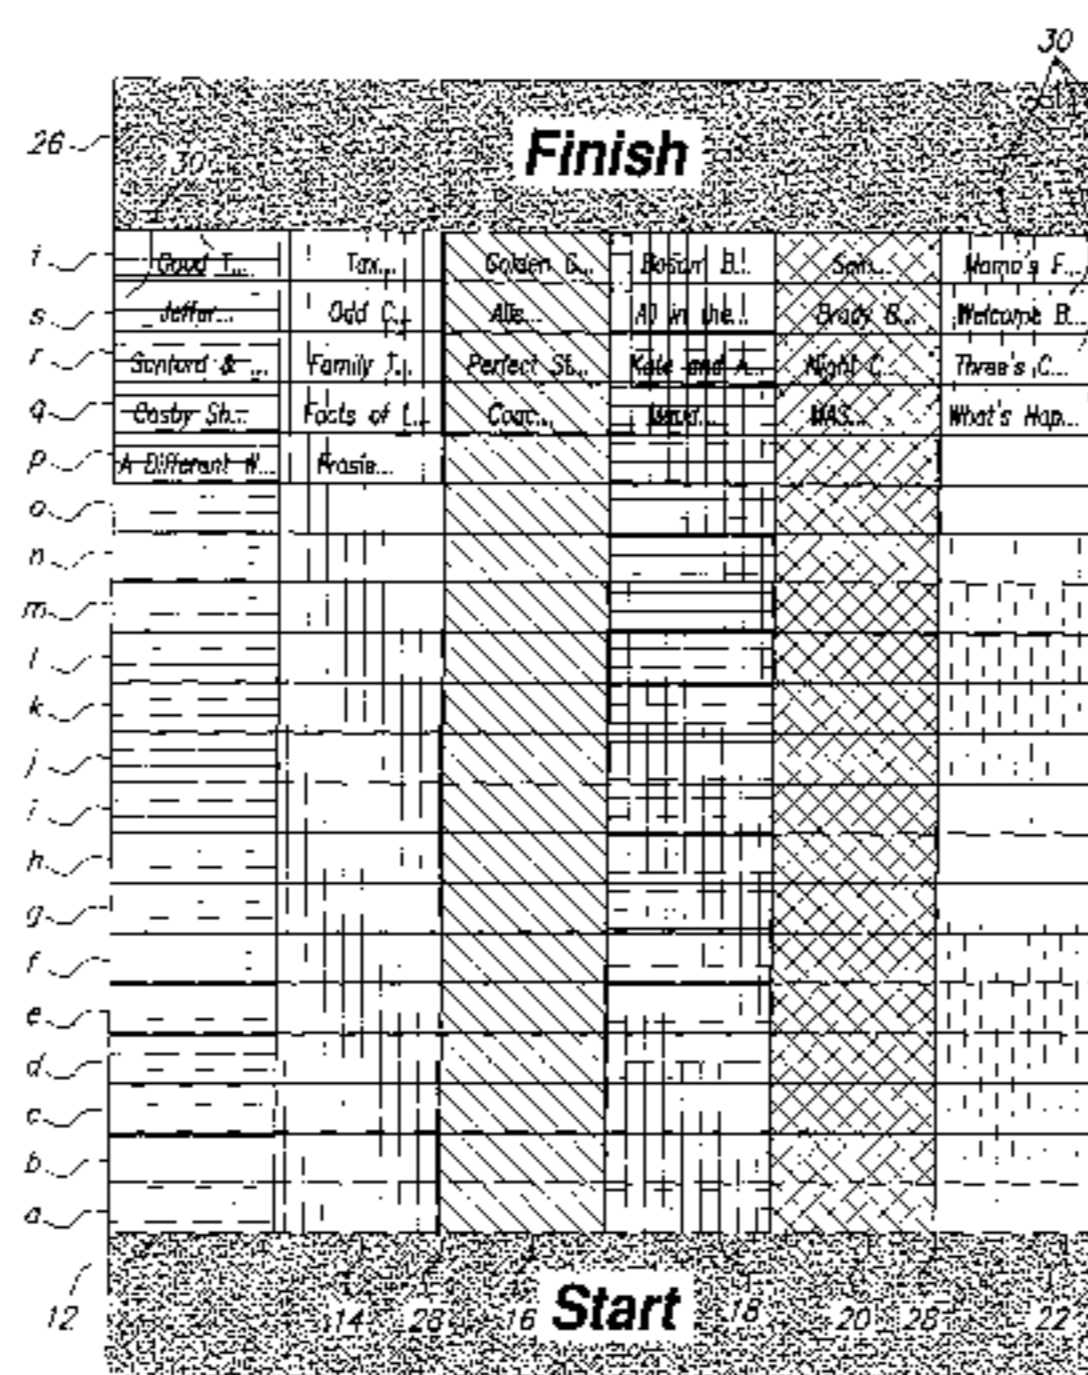 30
26
Finish
30
t Good T... Tax... Golden G... Boson B... Sein... Mama's F...
s Jeffer... Odd C... Alie... All in the... Brady B... Welcome B...
r Sanford & ... Family T... Perfect St... Kate and A... Night C... Three's C...
q Cosby Sh... Facts of L... Coac... MAS... What's Hap...
p A Different W... Frasie...
o
n
m
l
k
j
i
h
g
f
e
d
c
b
a
12 14 28 16 Start 18 20 28 22